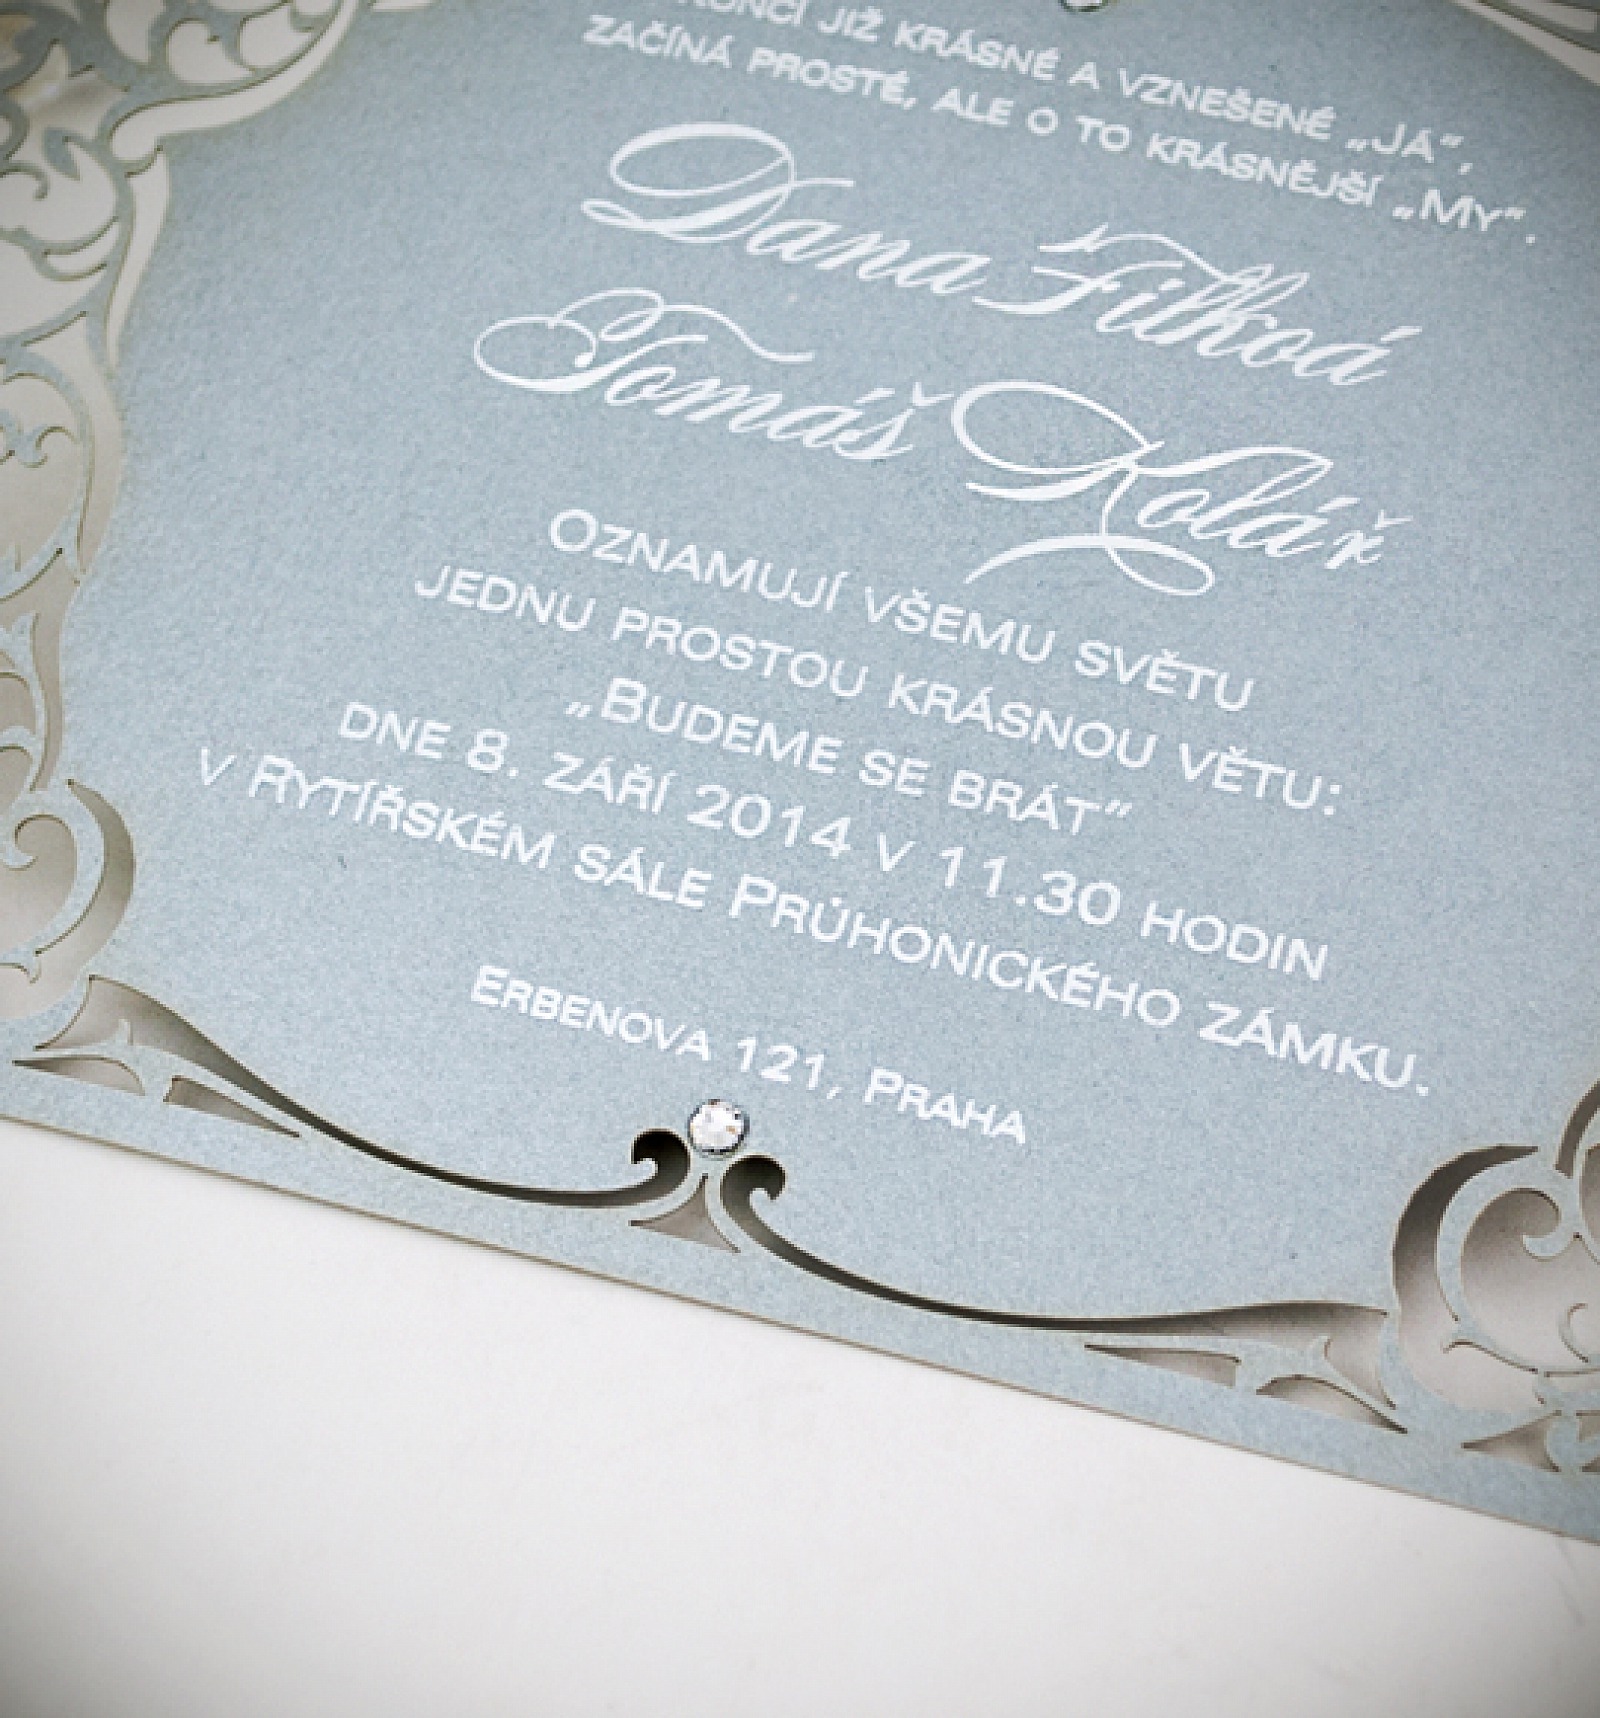 KONČÍ JIŽ KRÁSNÉ A VZNEŠENÉ „JÁ“,
ZAČÍNÁ PROSTÉ, ALE O TO KRÁSNĚJŠÍ „MY“.
Dana Filkoá
Tomáš Kolář
OZNAMUJÍ VŠEMU SVĚTU
JEDNU PROSTOU KRÁSNOU VĚTU:
„BUDEME SE BRÁT“
DNE 8. ZÁŘÍ 2014 V 11.30 HODIN
V RYTÍŘSKÉM SÁLE PRŮHONICKÉHO ZÁMKU.
ERBENOVA 121, PRAHA